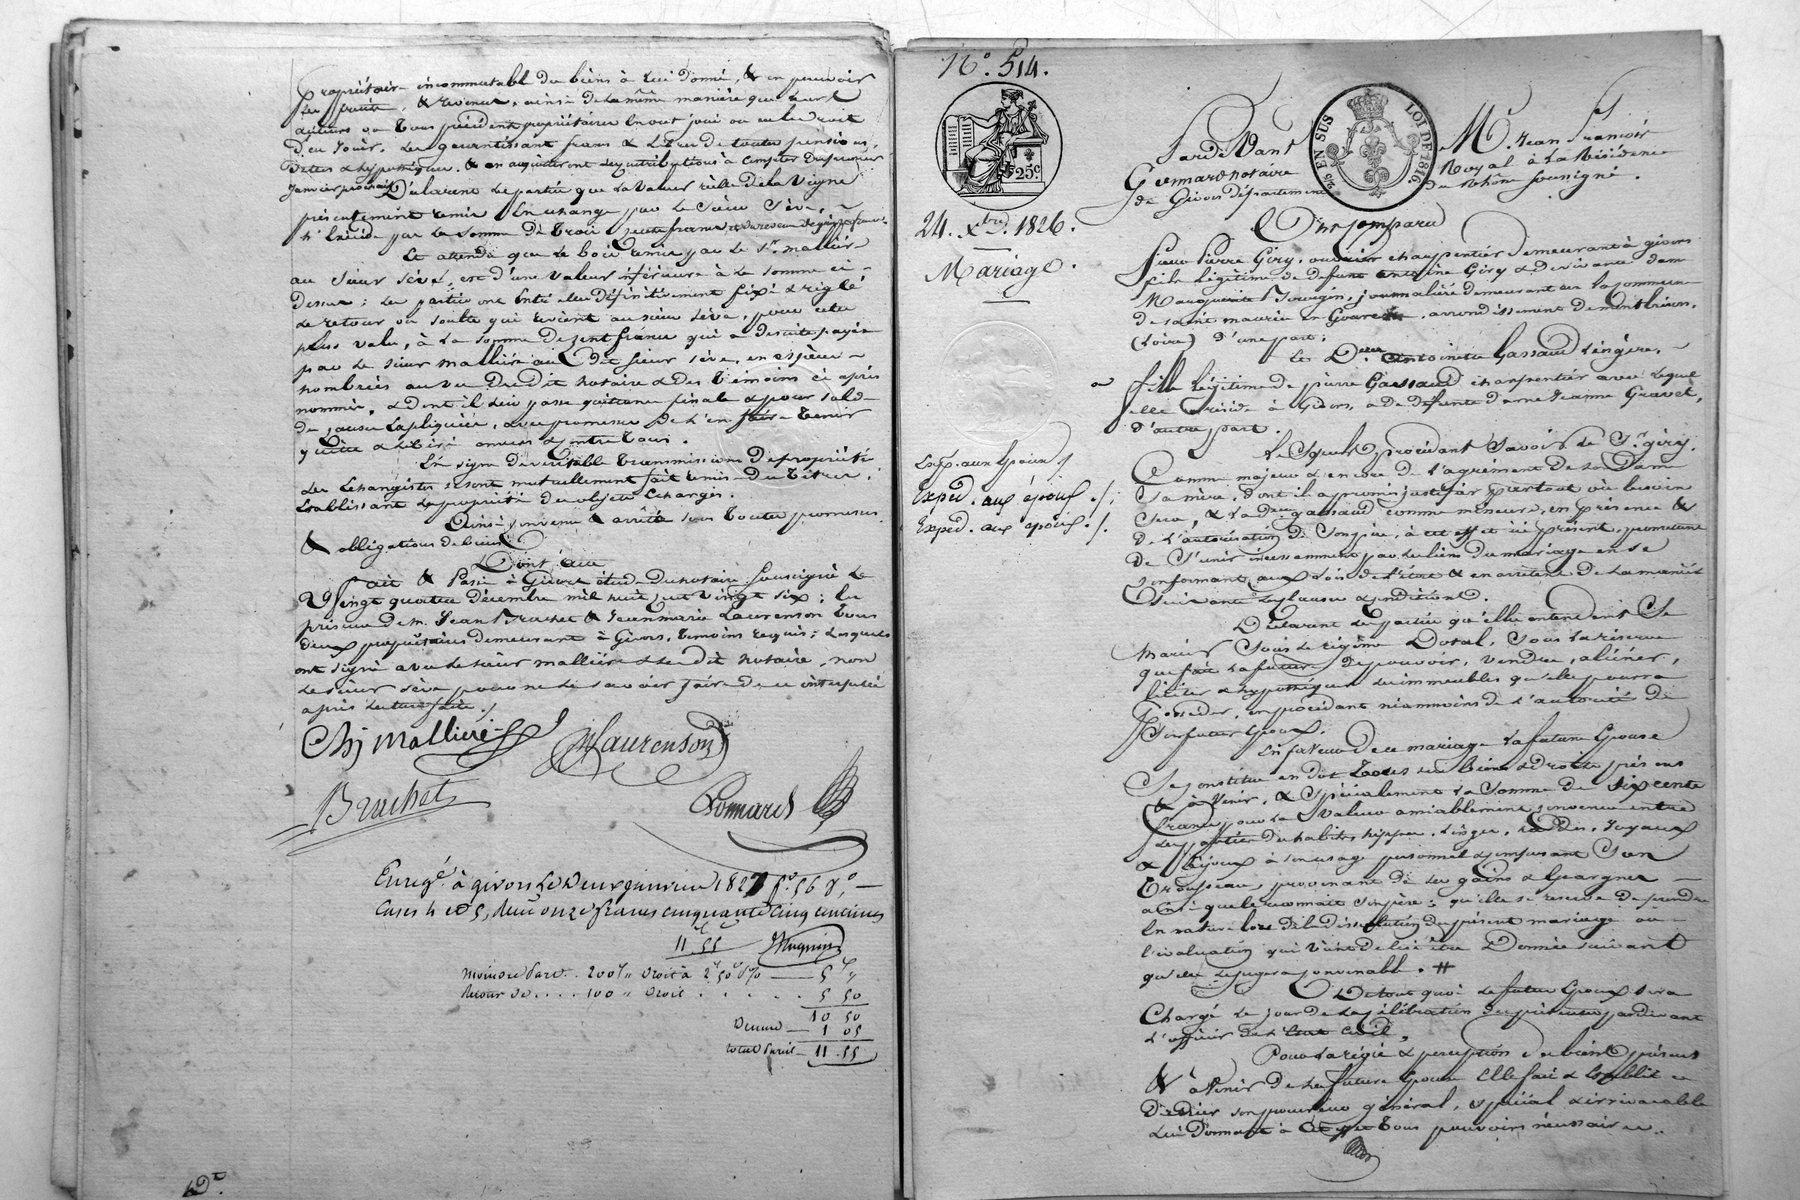 Propriétaire incommutable du biens à lui donné, & en pouvoir
les jouir, & revenus, ainsi de la même manière que leurs
auteurs ou tous précédents propriétaires en ont joui ou eu le droit
d'en jouir. Les garantissant francs & libres de toutes pensions,
Dettes & hypothèques. & en acquitteront les contributions à compter du premier
Janvier prochain. Déclarent les parties que la valeur réelle de la Vigne
présentement remise En échange par le Sieur Sève,
n'Excède pas la somme de Trois cents francs
Et attendu que le bois remis par le Sr. mallière
au Sieur Sève, est d'une valeur inférieure à la somme ci-
dessus; les parties ont Entre elles définitivement fixé & réglé
le retour ou soulte qui revient au sieur Sève, pour cette
plus value, à la somme de Cent francs qui a de suite payée
par le Sieur Mallière au dit sieur Sève, en espèces
nombrées au vu du dit notaire & des témoins ci après
nommés, & dont il lui passe quittance finale & pour solde
de cause Expliquée, avec promesse de l'en faire tenir
quitte & libéré envers & contre tous.
En signe de véritable transmission de propriété
les échangistes se sont mutuellement fait remise des titres
Etablissant la propriété des objets Echangés.
Ainsi convenu & arrêté sous toutes promesses
& obligations de biens
Dont acte
Fait & Passé à Givors étude du notaire soussigné le
Vingt quatre décembre mil huit cent vingt six; En
présence de M. Jean Brachet & Jean marie Laurenson tous
deux propriétaires demeurant à Givors, témoins requis; Lesquels
ont signé avec le sieur mallière & le dit notaire, non
le sieur Sève pour ne le savoir faire de ce interpellé
après lecture faite./.
Chj Mallière Laurenson
Brachet Gonnard
Enregé. à givors le deux janvier 1827 fo. 56 Vo.
Cases 4 et 5, Reçu onze francs cinquante cinq centimes
11f. 55
Moindre part. 200f " Droit à 2f 50c % 5f "
Retour de .... 100 " Droit ...... 5 50
10 50
Décime 1 05
total pareil 11.55
No. 514.
25c
EN SUS
LOI DE 1816.
24. Xbre. 1826.
Mariage.
Exp. aux époux /
Expéd. aux époux ./.
Expéd. aux époux ./.
Pardevant Me. Jean François
Gonnard notaire Royal à la Résidence
de Givors département du Rhône soussigné.
Ont Comparu
Sieur Pierre Giry, ouvrier charpentier demeurant à givors
fils légitime de défunt antoine Giry & de vivante dame
Marguerite, journalière demeurant en la commune
de saint maurice en Gourgois, arrondissement de montbrison,
(Loire) d'une part;
Et Dlle. antoinette Gassaud lingère,
fille légitime de pierre Gassaud charpentier avec lequel
elle réside à Givors, & de défunte dame Jeanne Gravet,
d'autre part.
Lesquels procédant savoir le Sr. giry
Comme majeur & encore de l'agrément de la Dame
sa mère, dont il a promis justifier partout où besoin
sera, & la dlle gassaud comme mineure, en présence &
de l'autorisation de son père, à cet effet ici présent, promettent
de s'unir incessamment par les liens du mariage en se
Conformant aux lois de l'état & en arrêtent de la manière
suivante les clauses & conditions.
Déclarent les parties qu'elles entendent se
Marier sous le régime Dotal, sous la réserve
que fait la future de pouvoir, vendre, aliéner,
liciter & hypothéquer les immeubles qu'elle pourra
Posséder, en procédant néanmoins de l'autorité de
Son futur Epoux.
En faveur de ce mariage la future Epouse
Se constitue en dot tous ses biens & droits présens
& à Venir, & Spécialement la Somme de Six cents
francs, pour la Valeur amiablement convenue entre
les parties des habits, nippes, linges, hardes, joyaux
& bijoux à son usage personnel & composant son
trousseau, provenant de ses gains & épargnes
ainsi que le reconnait son père; qu'elle se réserve de prendre
En nature lors de la dissolution du présent mariage ou
l'évaluation qui vient de lui être donnée suivant
qu'elle le jugera convenable. #
De tout quoi le futur Epoux sera
Chargé le jour de la célébration du présent pardevant
l'officier de l'état civil.
Pour la régie & perception des biens présens
& à venir de la future épouse Elle fait & établit ce
dernier son procureur général, spécial & irrévocable
lui donnant à cet effet tous pouvoirs nécessaires.